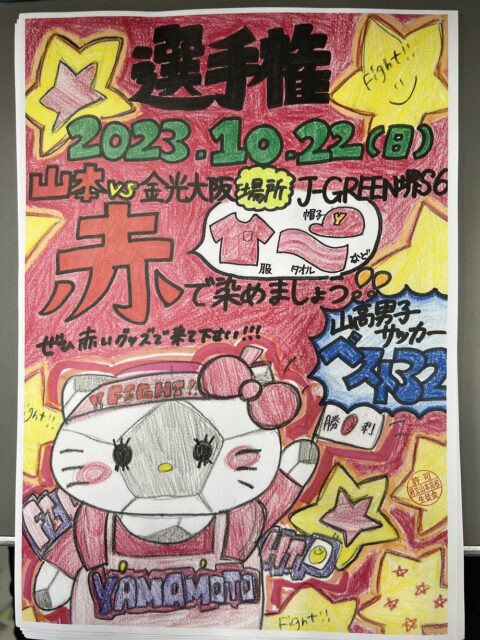 選手権
Fight!!
2023.10.22(日)
山本 vs 金光大阪 場所 J-GREEN堺S6
帽子 Y
服 タオル など
赤で染めましょう
ぜひ赤いグッズで来て下さい!!!
山高男子
サッカー
ベスト32
!!FIGHT!!
ight!!
勝利
許可
生徒会
YAMAMOTO
Fight!!